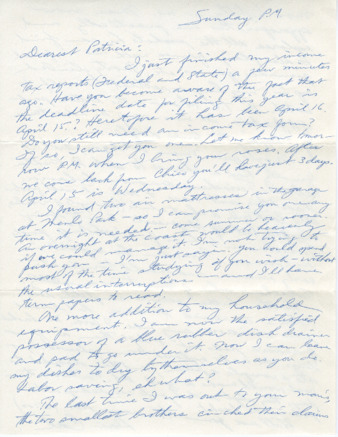 Sunday P.M.
Dearest Patricia:
I just finished my income
tax reports (Federal and State) a few minutes
ago. Have you become aware of the fact that
the deadline date for filing this year is
April 15? Heretofore it has been April 16.
Do you still need an income tax form?
If so, I can get you one. Let me know
P.M. when I bring your roses. After
we come back from Chico you'll have just 3 days.
April 15 is Wednesday.
I found two air mattresses in the garage
at Menlo Park – so I can promise you one any
time it is needed – come summer or sooner.
An overnight at the coast would be heavenly
if we could manage it. I'm not trying to
push you – I'm just saying you could spend
most of the time studying if you wish – without
the usual interruptions. and I'll have
term papers to read.
One more addition to my household
equipment. I am now the satisfied
possessor of a blue rubber dish drainer
and pad to go under it. Now I can leave
my dishes to dry by themselves as you do.
Labor saving, eh what?
The last time I was out to your mom's,
the two smallest brothers cinched their claims